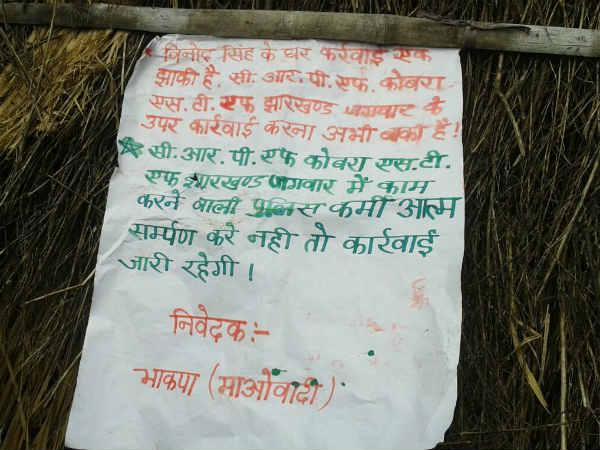 विनोद सिंह के घर कर्रवाई एक
झाकी है, सी. आर. पी. एफ. कोबरा
एस. टी. एफ झारखण्ड जगवार के
उपर कार्रवाई करना अभी बाकी है!
सी. आर. पी. एफ कोबरा एस. टी.
एफ झारखण्ड जगवार में काम
करने वाली पुलिस कर्मी आत्म
सर्म्पण करे नही तो कार्रवाई
जारी रहेगी।
निवेदक:-
भाकपा (माओवादी)